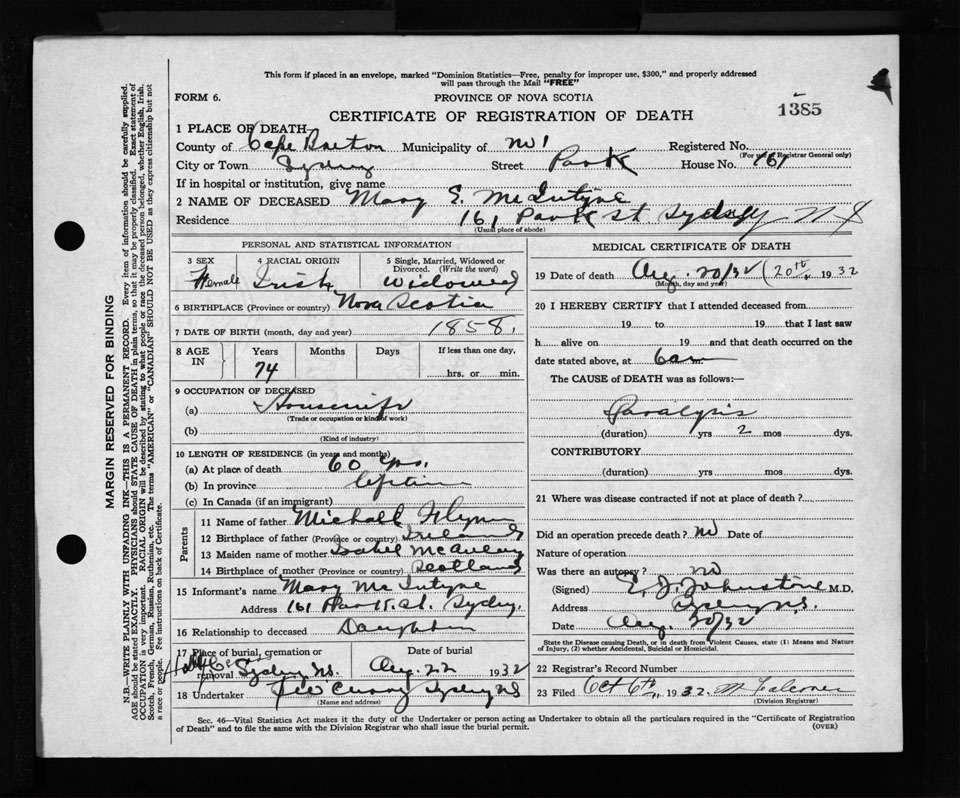 This form if placed in an envelope, marked "Dominion Statistics—Free, penalty for improper use, $300," and properly addressed
will pass through the Mail "FREE"
FORM 6.
PROVINCE OF NOVA SCOTIA
1385
CERTIFICATE OF REGISTRATION OF DEATH
1 PLACE OF DEATH
County of Cape Breton Municipality of No 1 Registered No.
(For use of Registrar General only)
City or Town Sydney Street Park House No. 161
If in hospital or institution, give name
2 NAME OF DECEASED Mary E. McIntyre
Residence 161 Park St Sydney N S
(Usual place of abode)
PERSONAL AND STATISTICAL INFORMATION
3 SEX Female
4 RACIAL ORIGIN Irish
5 Single, Married, Widowed or Divorced. (Write the word) Widowed
6 BIRTHPLACE (Province or country) Nova Scotia
7 DATE OF BIRTH (month, day and year) 1858.
8 AGE IN Years 74 Months Days If less than one day, hrs. or min.
9 OCCUPATION OF DECEASED
(a) Housewife
(Trade or occupation or kind of work)
(b)
(Kind of industry)
10 LENGTH OF RESIDENCE (in years and months)
(a) At place of death 60 yrs.
(b) In province lifetime
(c) In Canada (if an immigrant)
Parents
11 Name of father Michael Flynn
12 Birthplace of father (Province or country) Ireland
13 Maiden name of mother Isabel McAulay
14 Birthplace of mother (Province or country) Scotland
15 Informant's name Mary McIntyre
Address 161 Park St. Sydney.
16 Relationship to deceased Daughter
17 Place of burial, cremation or removal Sydney NS. Date of burial Aug. 22 1932
18 Undertaker Curry Sydney NS
(Name and address)
MEDICAL CERTIFICATE OF DEATH
19 Date of death Aug. 20/32 (20th, 1932
(Month, day and year)
20 I HEREBY CERTIFY that I attended deceased from
19 to 19 that I last saw
h alive on 19 and that death occurred on the
date stated above, at 6 am
The CAUSE of DEATH was as follows:—
Paralysis
(duration) yrs 2 mos dys.
CONTRIBUTORY
(duration) yrs mos dys.
21 Where was disease contracted if not at place of death?
Did an operation precede death? no Date of
Nature of operation
Was there an autopsy? no
(Signed) E. J. Johnstone M.D.
Address Sydney N.S.
Date Aug. 20/32
State the Disease causing Death, or in death from Violent Causes, state (1) Means and Nature
of Injury, (2) whether Accidental, Suicidal or Homicidal.
22 Registrar's Record Number
23 Filed Oct 6th, 1932. M Falconer
(Division Registrar)
Sec. 46—Vital Statistics Act makes it the duty of the Undertaker or person acting as Undertaker to obtain all the particulars required in the "Certificate of Registration
of Death" and to file the same with the Division Registrar who shall issue the burial permit.
(OVER)
MARGIN RESERVED FOR BINDING
N.B.—WRITE PLAINLY WITH UNFADING INK—THIS IS A PERMANENT RECORD. Every item of information should be carefully supplied.
AGE should be stated EXACTLY. PHYSICIANS should STATE CAUSE OF DEATH in plain terms, so that it may be properly classified. Exact statement of
OCCUPATION is very important. RACIAL ORIGIN will be described by stating to what people or race the deceased person belonged, whether English, Irish,
Scotch, French, German, Russian, Ruthenian, etc. The terms "AMERICAN" or "CANADIAN" SHOULD NOT BE USED as they express citizenship but not
a race or people. Fee instructions on back of Certificate.